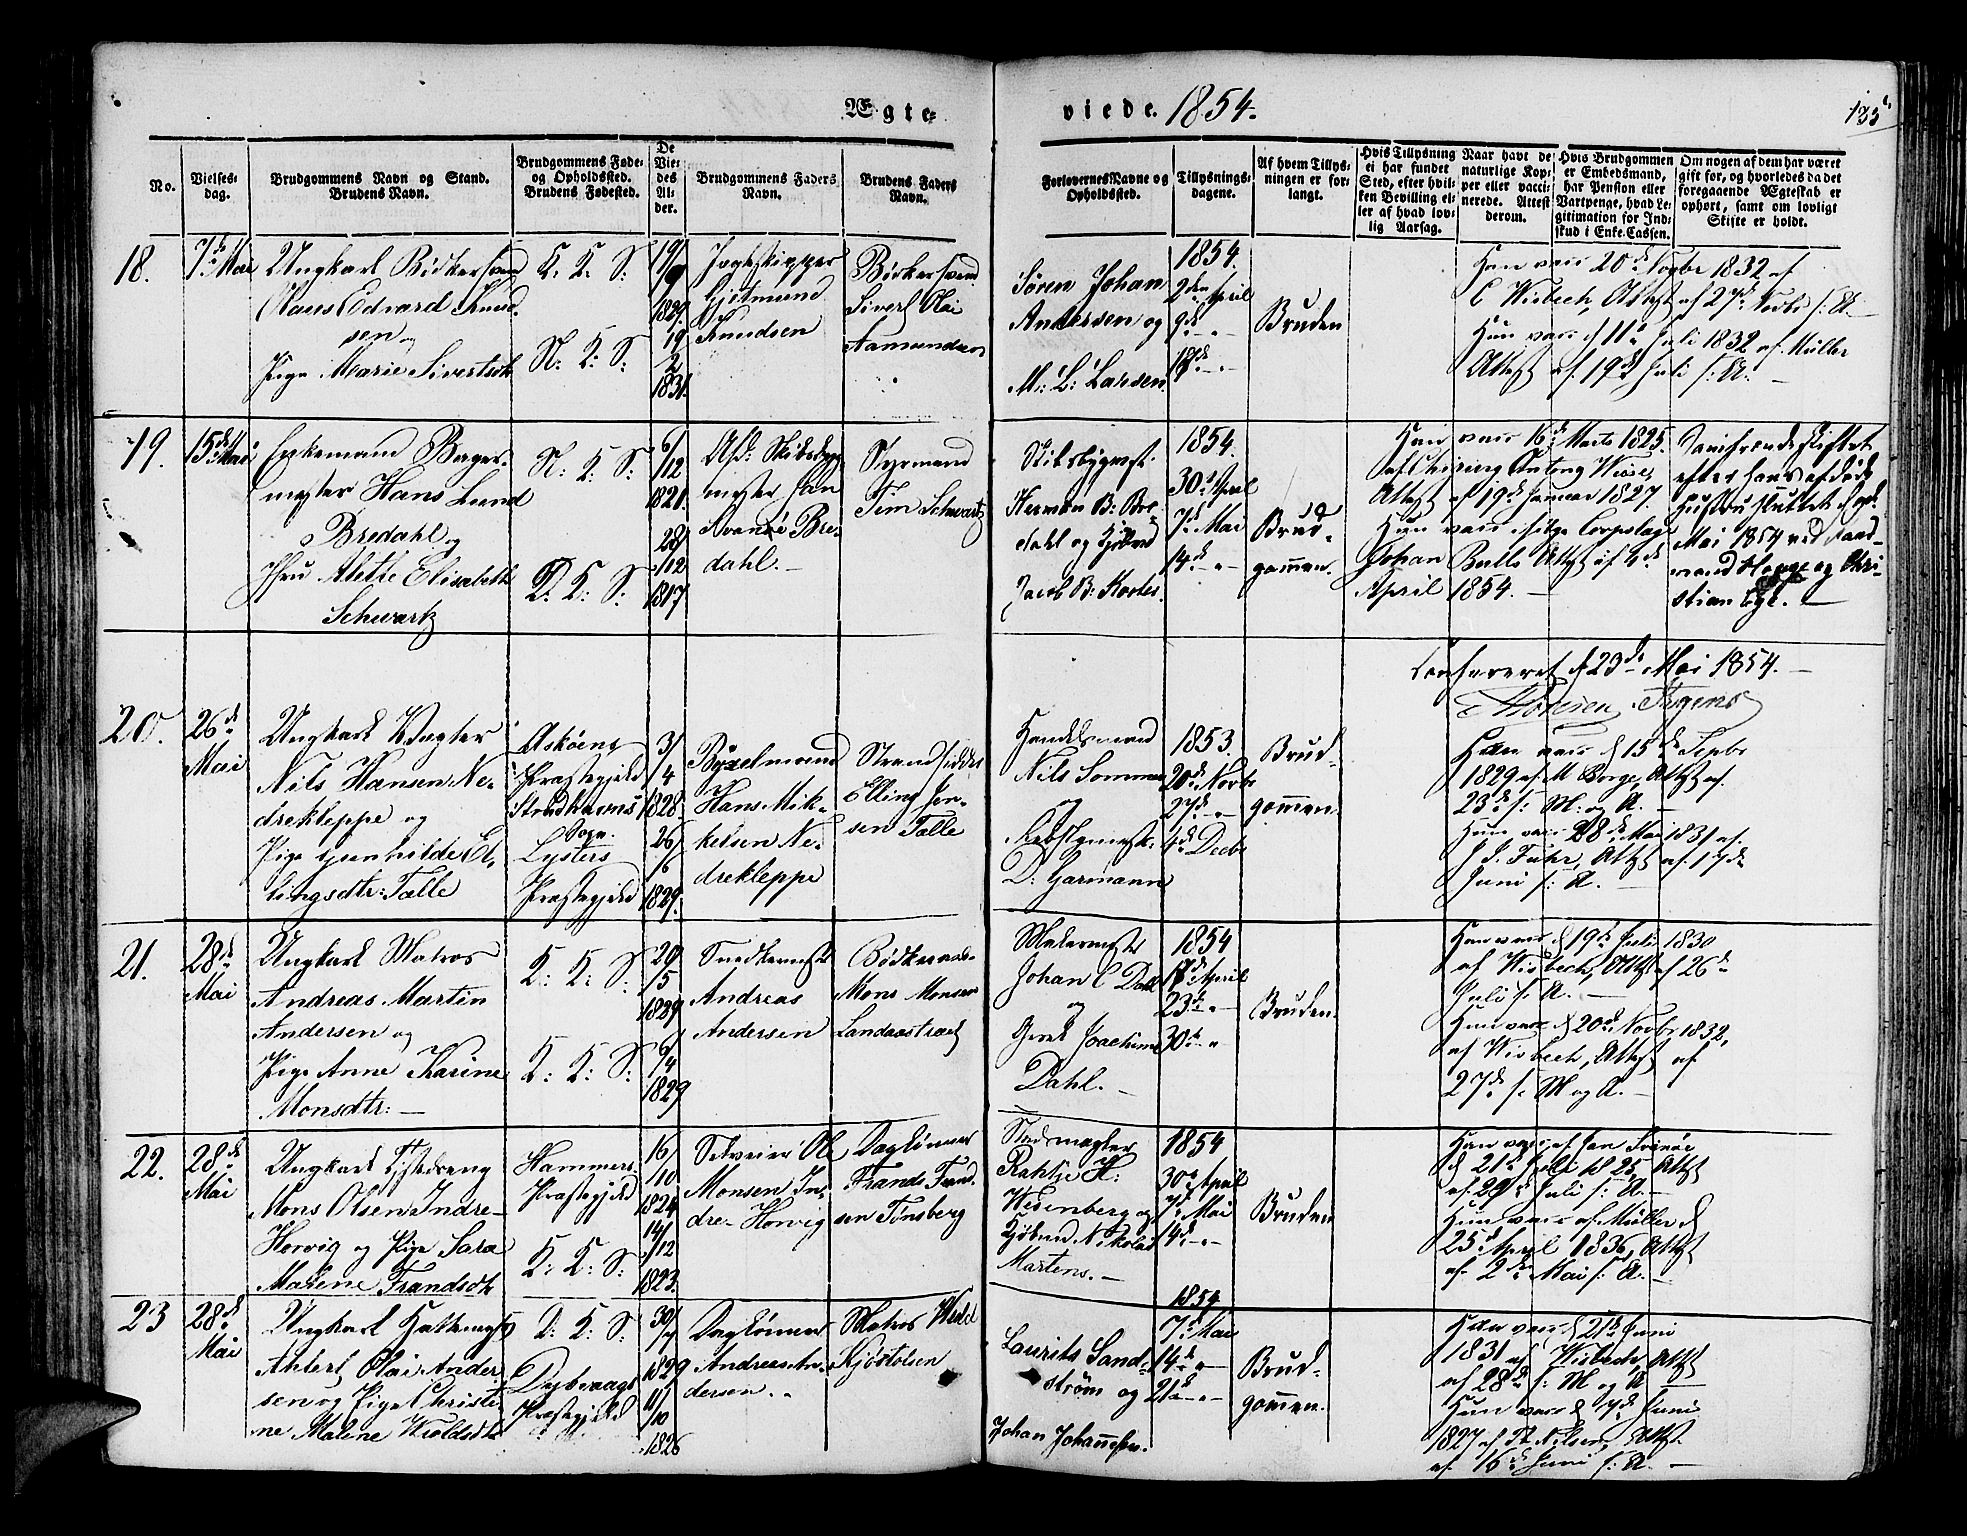 Ægte=
viede. 1854.
135
No.
Vielses=
dag.
Brudgommens Navn og Stand.
Brudens Navn.
Brudgommens Føde=
og Opholdssted.
Brudens Fødested.
De
Vie=
des
Al=
der.
Brudgommens Faders
Navn.
Brudens Faders
Navn.
Forlovernes Navne og
Opholdssted.
Tillysnings=
dagene.
Af hvem Tillys=
ningen er for=
langt.
Hvis Tillysning
ei har fundet
Sted, efter hvil=
ken Bevilling el=
ler af hvad lov=
lig Aarsag.
Naar havt de
naturlige Kop=
per eller vacci=
nerede. Attest
derom.
Hvis Brudgommen
er Embedsmand,
har Pension eller
Vartpenge, hvad Le=
gitimation for Ind=
skud i Enke=Cassen.
Om nogen af dem har været
gift før, og hvorledes da det
foregaaende Ægteskab er
ophørt, samt om lovligt
Skifte er holdt.
18.
7de Mai
Ungkarl Bødkersvend
Claus Edvard Knud=
sen og
Pige Marie Sivertsdtr
K: K: S:
N: K: S:
19/
9
1829.
19
2
1831.
Jagtskipper
Gjetmund
Knudsen
Bødkersvend
Sivert Olai
Aamundsen
Søren Johan
Andersen og
M: L: Larsen.
1854.
2den April
9de - -
17de - -
Bruden
Han vacc 20de Novbr 1832 af
C Wisbech, Attest af 27de Novbr s: A. -
Hun vacc d 11te Juli 1832 af Müller
Attest af 19de Juli s: A. -
19.
15de Mai
Enkemand Borger=
mester Hans Lund
Bredahl og
Jfru Alette Elisabeth
Schwartz
N: K: S:
D: K: S:
6/
12
1821.
28/
12
1817
Afd: Skibsbyg
mester Jan
Svanøe Bre=
dahl. -
Styrmand
Tim Schwartz
Skibsbygmst.
Herman B: Bre=
dahl og Kjøbmd
Jacob B: Kroeles.
1854.
30te April
7de Mai
14de - -
Brud=
gommen.
Han vacc 16de Marts 1825.
af Chirurg Antony Wisse,
Attest af 19de Januar 1827.
Hun vacc ifølge Corpslæge
Johan Bulls Attest af 4de
April 1854. -
Samfrændeskiftet
efter hans afdøde
Hustru sluttet d 9de
Mai 1854 ved Sand=
mand Hoppe og Chri=
stian Ege. -
Confereret d 23de Mai 1854. -
20.
26de
Mai
Ungkarl Vægter
Nils Hansen Ne=
drekleppe og
Pige Gunhilde El=
lingsdtr: Talle
Askøens
Præstegjeld
Strudshavns
Sogn.
Lysters
Præstegjeld
3/
4
1828.
26
6
1829.
Bøxelmand
Hans Mik=
kelsen Ne=
drekleppe
Strandsidder
Elling Jen=
sen Talle
Handelsmand
Nils Sommer
og
Rebslgmest.
D: Garmann
1853.
20de Novbr
27de - -
4de Decbr
Brud=
gommen.
Han vacc d 15de Septbr
1829 af M Borge, Attest af
23de s: M: og A. -
Hun vacc 28de Mai 1831 af
J. J. Fuhr, Attest af 17de
Juni s: A. -
21.
28de
Mai
Ungkarl Matros
Andreas Martin
Andersen og
Pige Anne Karine
Monsdtr: -
K: K: S:
K: K: S:
29
5
1829
6/
4
1829
Snedkermst
Andreas
Andersen
Bødkermst
Mons Monsen
Landaastræet
Malermstr
Johan C Dahl
og
Geret Joachim
Dahl. -
1854
17de April
23de -
30te -
Bruden.
Han vacc d 19de Juli 1830
af Wisbech, Attest af 26de
Juli s: A. -
Hun vacc d 20de Novbr 1832,
af Wisbech, Attest af
27de s: M og A. -
22.
28de
Mai
Ungkarl Tjstedreng
Mons Olsen Indre=
Horvig og Pige Sara
Malene Frandsdtr
Hammers
Præstegjeld
K: K: S:
16
10
1824
14/
12
1823.
Selveier Ole
Monsen In=
dre- Horvig
Daglønner
Frands Frand=
sen Tønsberg
Stadsmægler
Rahtje H:
Wesenberg og
Kjøbmd. Nikolas
Martens. -
1854
30te April
7de Mai
14de - -
Bruden
Han vacc af Jan Svanøe
d 21de Juli 1825, Attest
af 29de Juli s: A. -
Hun vacc af Müller d
25de April 1836, Attest
af 2den Mai s: A. -
23
28de
Mai
Ungkarl
Ahlert Olai Ander=
sen og Pige Christi=
ne Malene Wioldsdtr
D: K: S:
Dybvaags
Præstegjeld
30/
7
1829
11/
10
1826
Daglønner
Andreas An=
dersen. -
Matros Wiold
Kjøstolsen
Laurits Sand=
strøm og
Johan Johannesen.
1854
7de Mai
14de -
21de - -
Brud=
gommen.
Han vacc d 21de Juni
1831 af Wisbech, Attest
af 28de s: M og A -
Hun vacc d 7de Juni
1827 af N. Nilsen, Attst
af 16de Juni s: A. -